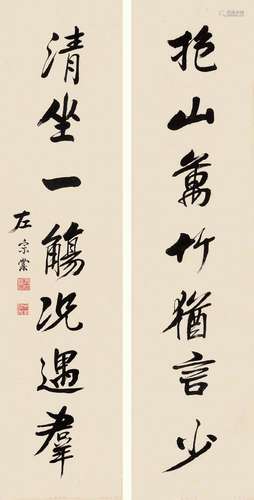 抱山萬竹猶言少
清坐一觴況遇羣
左宗棠